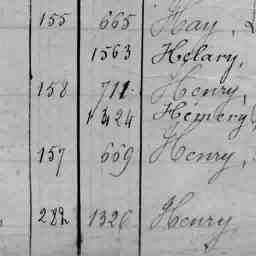 155 665 Hay,
1563 Hélary,
158 711 Henry,
1424 Hémery
157 669 Henry,
282 1326 Henry